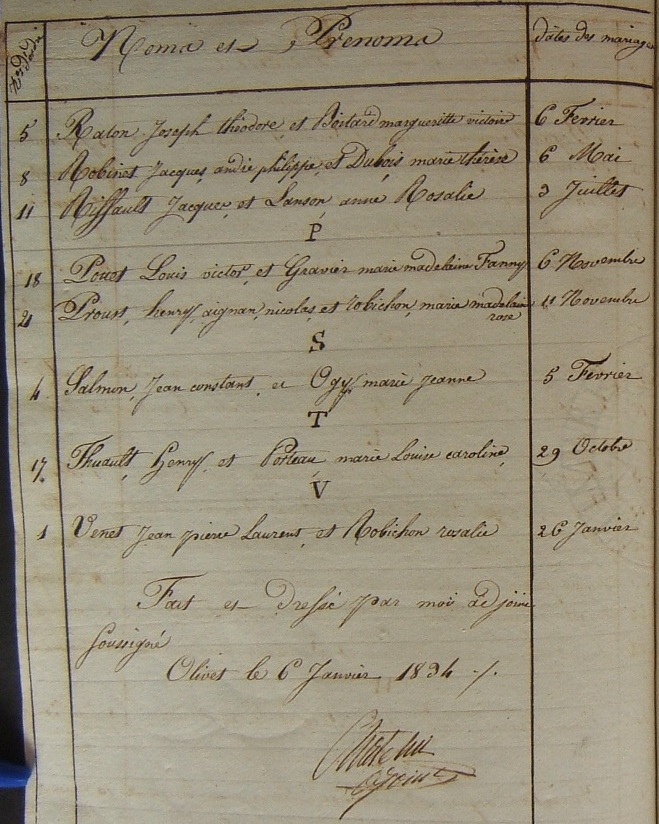 Nos d'ordre Noms et Prénoms dates des mariages
5 Raton Joseph théodore, et Boitard margueritte victoire 6 Fevrier
8 Robinet Jacques, andré philippe, et Dubois marie thérèse 6 Mai
11 Riffault Jacques, et Lanson anne Rosalie 3 Juillet
P
18 Louis victor, et Gravier marie madelaine Fanny 6 Novembre
21 Proust, henry, aignan, nicolas, et robichon, marie madelaine 11 Novembre
rose
S
4 Salmon, Jean constant, et Ogy, marie jeanne 5 Fevrier
T
17 Thuault, henry, et Poteau marie Louise caroline, 29 Octobre
V
1 Venet Jean pierre Laurent, et Robichon rosalie 26 Janvier
Fait et dressé par moi adjoint
soussigné
Olivet le 6 Janvier 1834 ./.
adjoint